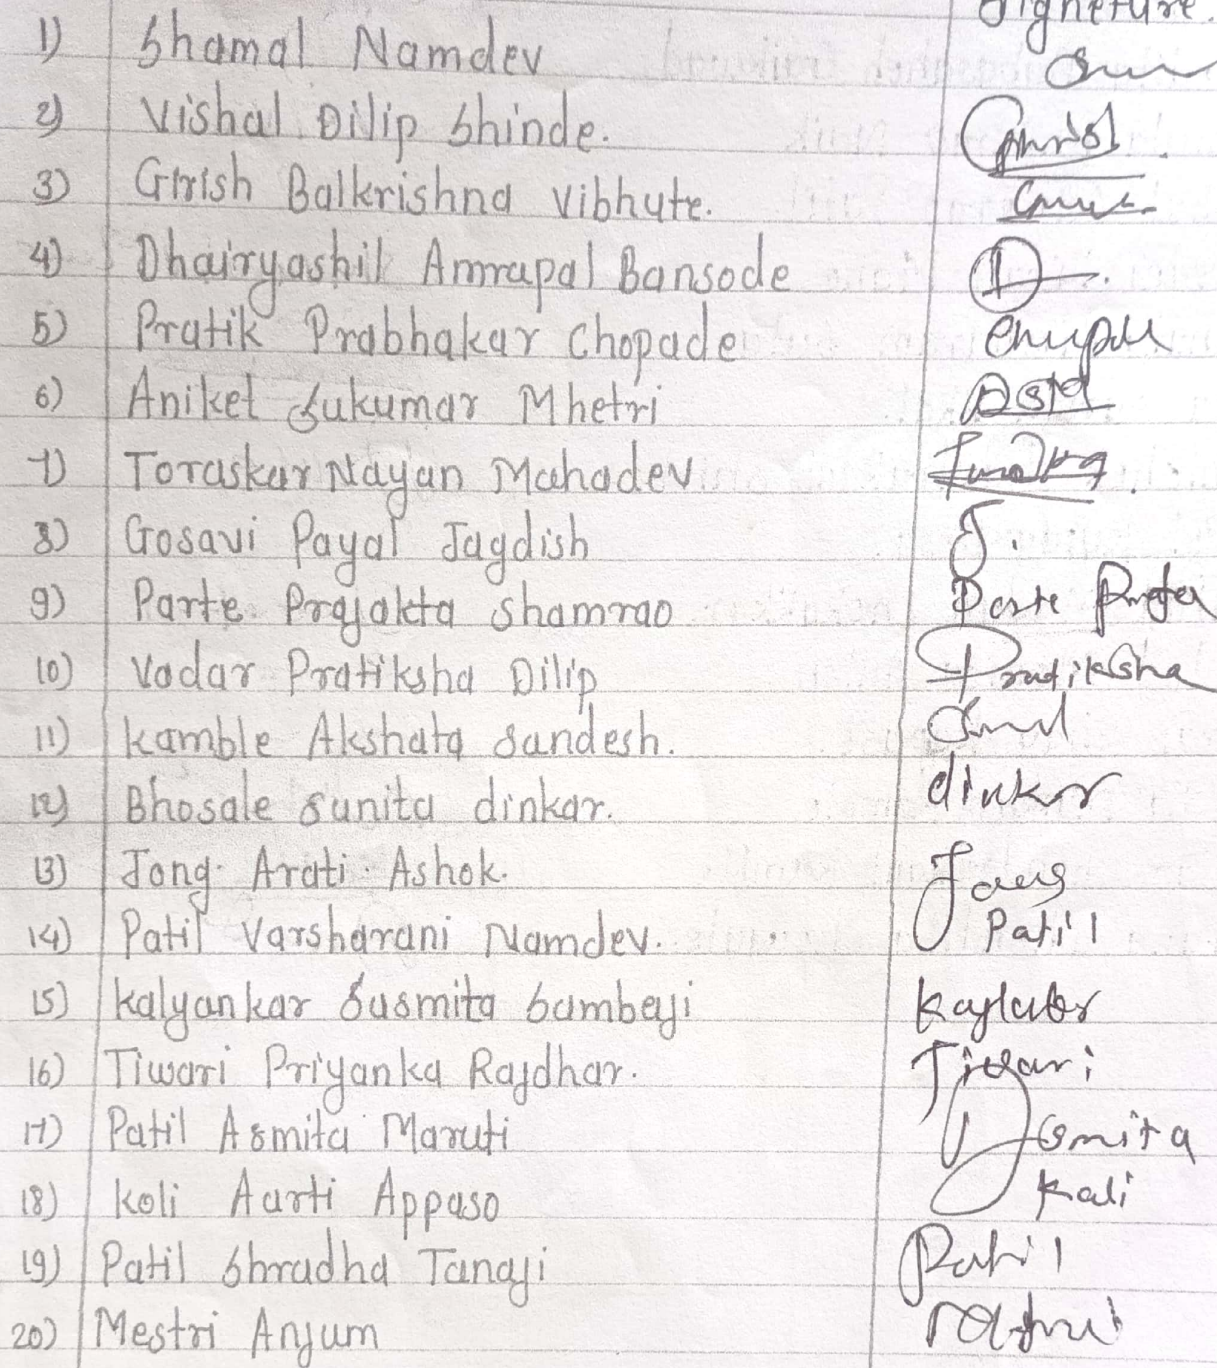 Signeture.
1) Shamal Namdev
2) Vishal Dilip Shinde.
3) Girish Balkrishna Vibhute.
4) Dhairyashil Amrapal Bansode
5) Pratik Prabhakar Chopade
6) Aniket Sukumar Mhetri
7) Toraskar Nayan Mahadev
8) Gosavi Payal Jagdish
9) Parte Prajakta Shamrao Parte
10) Vadar Pratiksha Dilip Pratiksha
11) Kamble Akshata Sandesh.
12) Bhosale Sunita dinkar. dinkar
13) Jong Arati Ashok.
14) Patil Varsharani Namdev. Patil
15) Kalyankar Susmita Sambeyi
16) Tiwari Priyanka Rajdhar. Tiwari
17) Patil Asmita Maruti Asmita
18) Koli Aarti Appaso Kali
19) Patil Shradha Tanaji Patil
20) Mestri Anjum